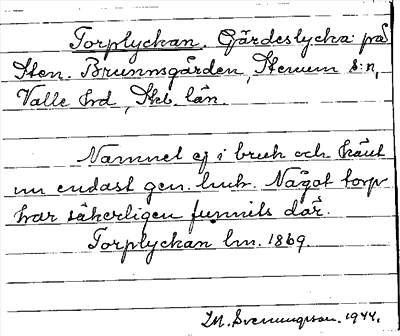 Torplyckan. Gärdeslycka på
Sten. Brunnsgården, Stenum s:n,
Valle hd, Skb. län.
Namnet ej i bruk och känt
nu endast gen. luh. Något torp
har säkerligen funnits där.
Torplyckan lm. 1869.
M. Svenungsson. 1944.